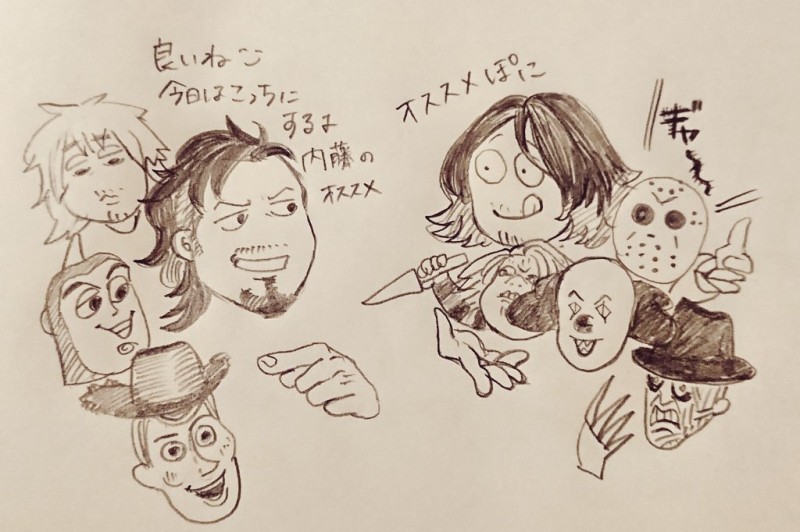 良いね
今日はこっちに
するよ
内藤の
オススメ
オススメぽに
ギャ〜